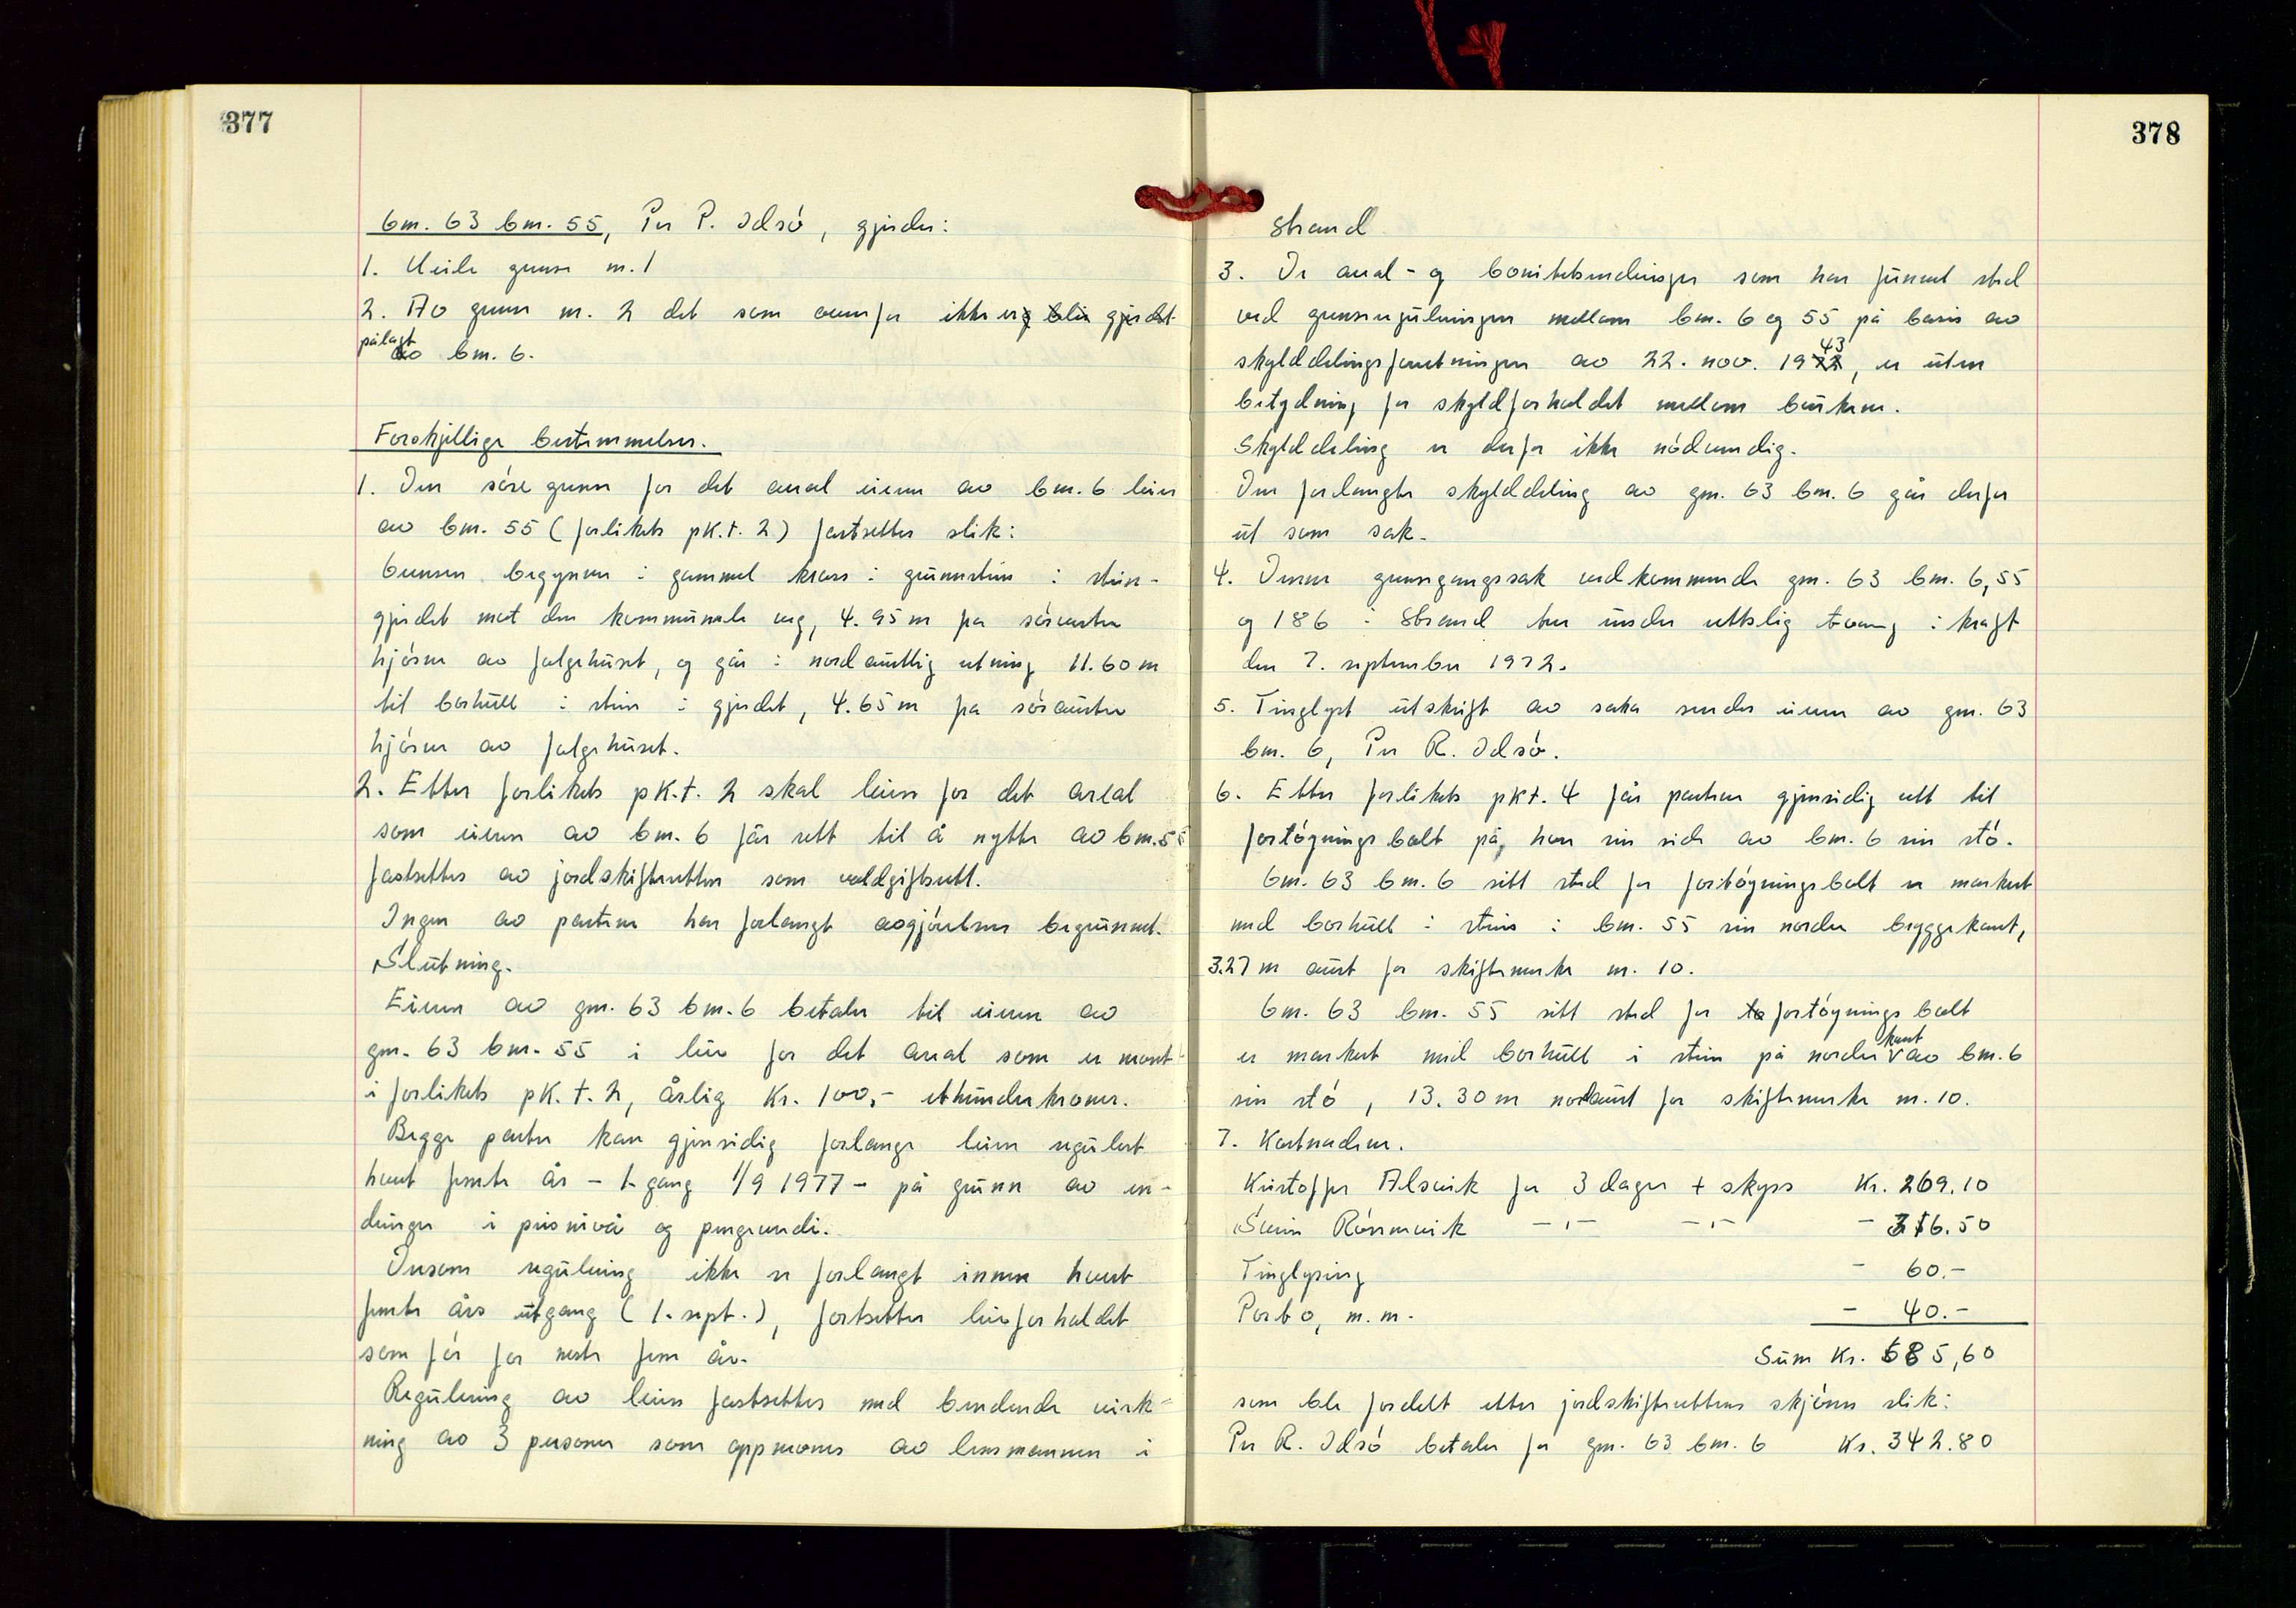 377
Gnr. 63 bnr. 55, Per P. Idsö, gjerder:
1. Heile grense nr. 1
2. Av grense nr. 2 det som ovenfor ikke er gjerdet
pålagt
av bnr. 6.
Forskjellige bestemmelser.
1. Den söre grense for det areal eieren av bnr. 6 leier
av bnr. 55 (forlikets pk.t. 2) fastsettes slik:
Grensen begynner i gammel kross i grunnstein i stein-
gjerdet mot den kommunale veg, 4.95 m fra sörvestre
hjörne av følgehuset, og går i nordaustlig retning 11.60 m
til borhull i stein i gjerdet, 4.65 m fra söraustre
hjörne av følgehuset.
2. Etter forlikets pk.t. 2 skal leien for det areal
som eieren av bnr. 6 får rett til å nytte av bnr. 55
fastsettes av jordskifteretten som voldgiftsrett.
Ingen av partene har forlangt avgjörelsen begrunnet.
Slutning.
Eieren av gnr. 63 bnr. 6 betaler til eieren av
gnr. 63 bnr. 55 i leie for det areal som er nevnt
i forlikets pk.t. 2, årlig kr. 100,- etthundrekroner.
Begge parter kan gjensidig forlange leien regulert
hvert femte år - 1. gang 1/9 1977 - på grunn av en-
dringer i prisnivå og pengeverdi.
Dersom regulering ikke er forlangt innen hvert
femte års utgang (1. sept.), fortsetter leieforholdet
som för for neste fem år.
Regulering av leien fastsettes med bindende virk-
ning av 3 personer som oppnevnes av lensmannen i
378
Strand
3. De areal- og bonitetsendringer som har funnet sted
ved grensereguleringen mellom bnr. 6 og 55 på basis av
43
skylddelingsforretningen av 22. nov. 1922, er uten
betydning for skyldforholdet mellom brukene.
Skylddeling er derfor ikke nödvendig.
Den forlangte skylddeling av gnr. 63 bnr. 6 går derfor
ut som sak.
4. Denne grensegangssak vedkommende gnr. 63 bnr. 6, 55
og 186 i Strand trer under rettslig tvang i kraft
den 7. september 1972.
5. Tinglyst utskrift av saka sendes eieren av gnr. 63
bnr. 6, Per R. Idsö.
6. Etter forlikets pkt. 4 får partene gjensidig rett til
fortöyningsbolt på hver sin side av bnr. 6 sin stö.
Gnr. 63 bnr. 6 sitt sted for fortöyningsbolt er merket
med borhull i stein i bnr. 55 sin nordre bryggekant,
3.27 m aust for skiftemerke nr. 10.
Gnr. 63 bnr. 55 sitt sted for to fortöyningsbolt
kant
er merket med borhull i stein på nordre v av bnr. 6
sin stö, 13.30 m nordaust for skiftemerke nr. 10.
7. Kostnadene.
Kristoffer Alsvik for 3 dager + skyss Kr. 269.10
Svein Rörsnevik -"- -"- - 316.50
Tinglysing - 60.-
Porto, m.m. - 40.-
Sum Kr. 685,60
som ble fordelt etter jordskifterettens skjönn slik:
Per R. Idsö betaler for gnr. 63 bnr. 6 Kr. 342.80